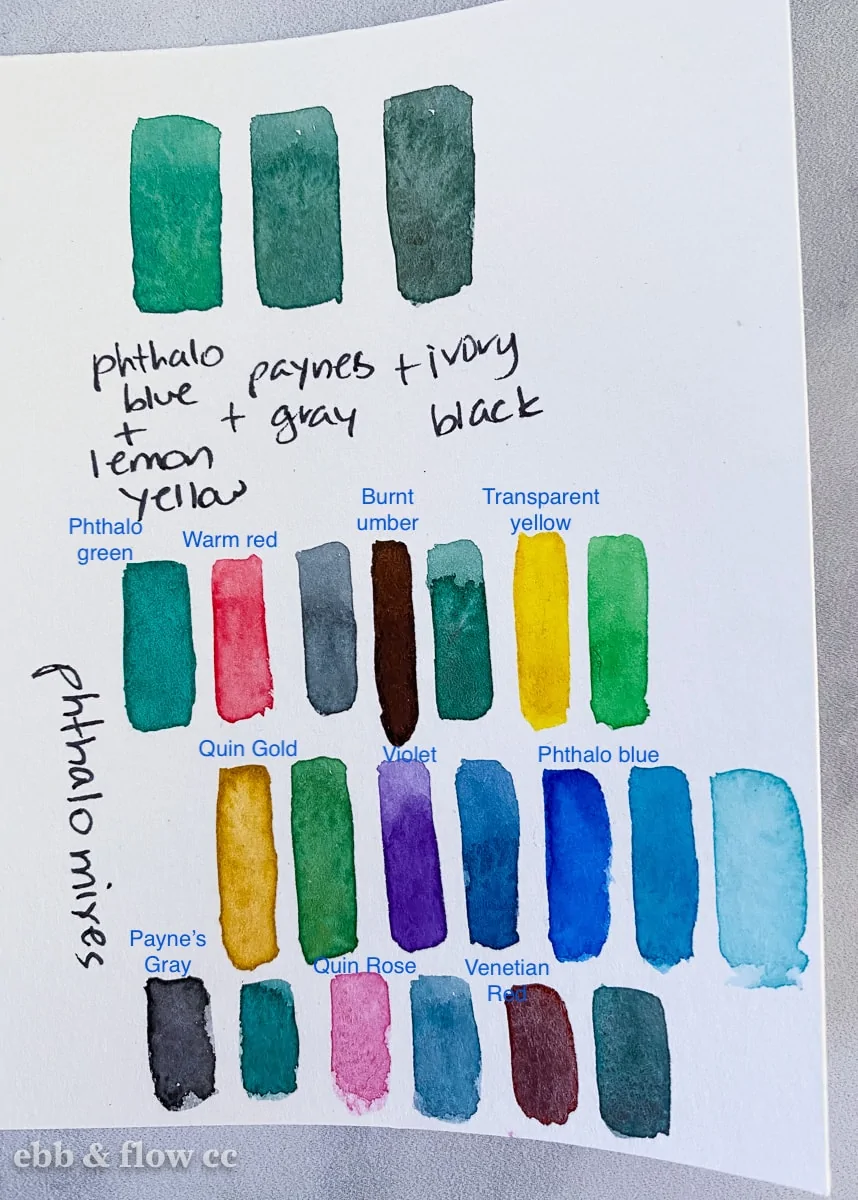 phthalo
blue
+
lemon
yellow
+ paynes
gray
+ ivory
black
Phthalo
green
Warm red
Burnt
umber
Transparent
yellow
phthalo mixes
Quin Gold
Violet
Phthalo blue
Payne's
Gray
Quin Rose
Venetian
Red
ebb & flow cc